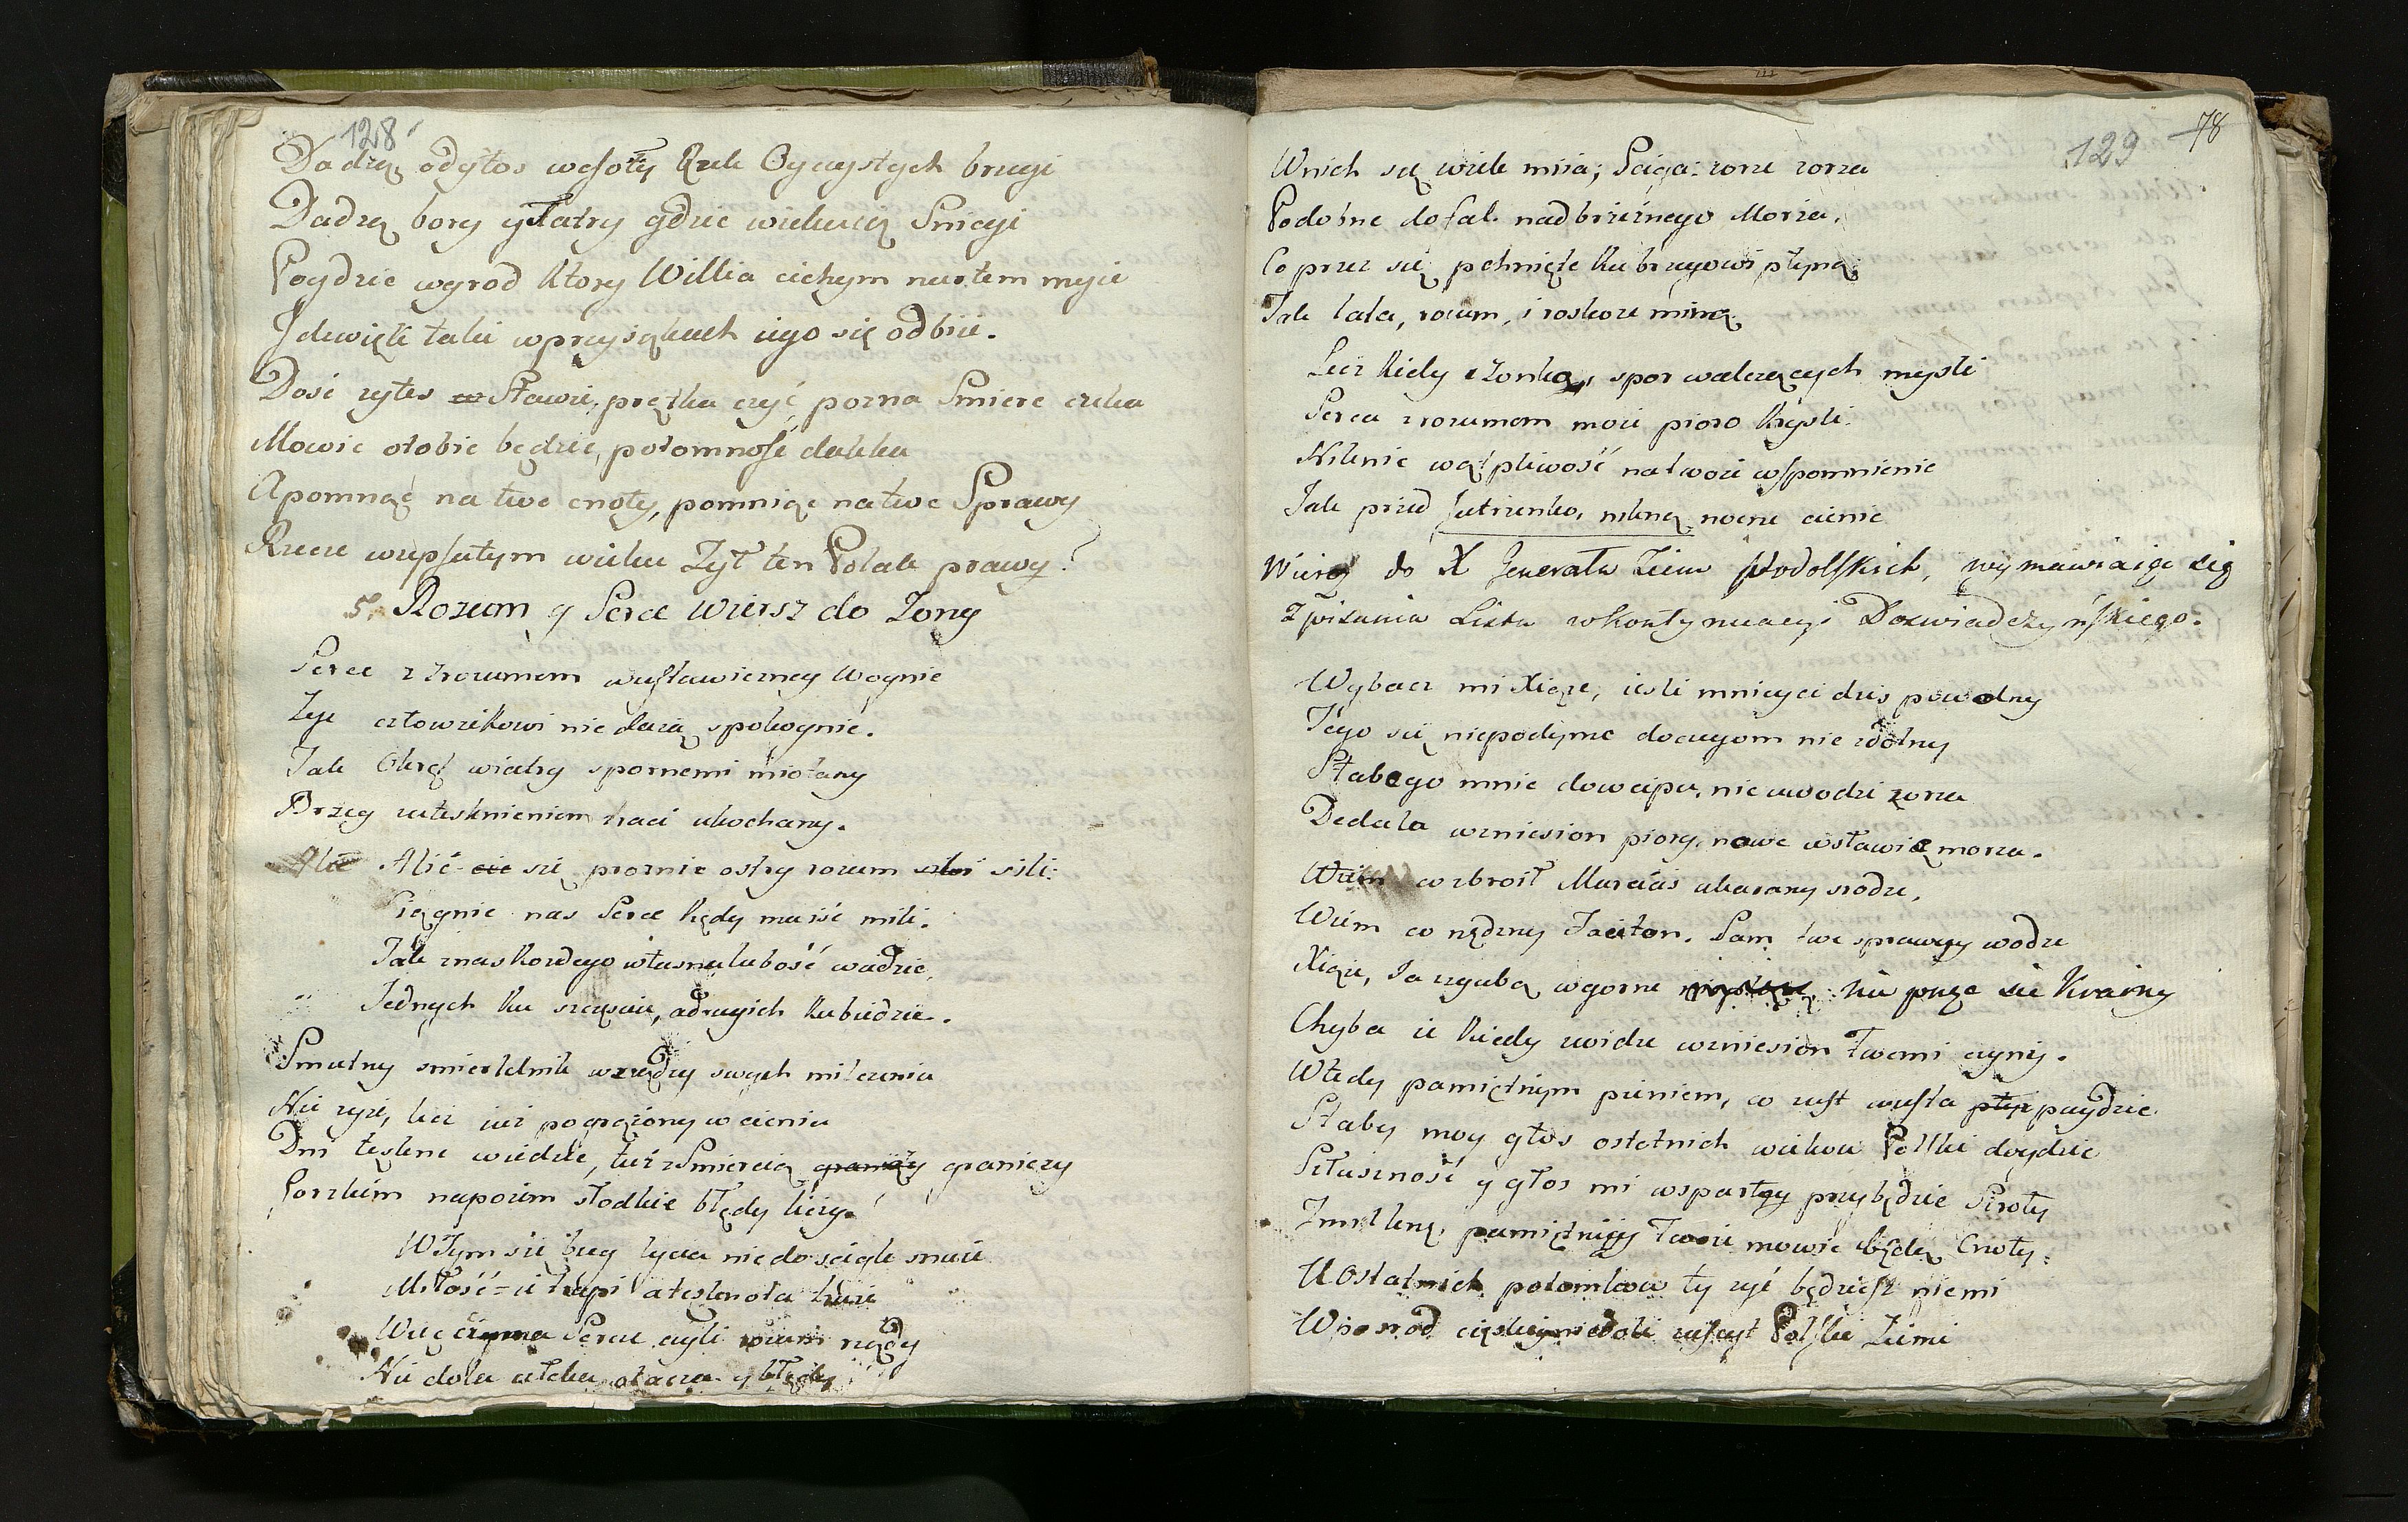 128
Dadzą odgłos wesoły Rzek Oyczystych brzegi
Dadzą bory y Tatry gdzie wiekuią Sniegi
Poydzie w grod ktory Willia cichym nurtem myie
I dzwięk taki w przysiąkach iego się odbiie.
Dość zyłes w Sławie, prętka czyć pozna Smierc czeka
Mowic o tobie będzie, potomność daleka
A pomnąc na twe cnoty, pomniąc na twe Sprawy
Rzecze w zepsutym wieku Zył ten Polak prawy!
5. Rozum y Serce Wiersz do Zony
Serce z rozumem w ustawiczney Woynie
Zyc człowiekowi nie daią spokoynie.
Jak Okręt wiatry spornemi miotany
Brzeg z utesknieniem traci ukochany.
Alić się proznie ostry rozum sili:
Ciągnie nas Serce kędy mu iść mili.
Jak z nas kozdego własna lubość wiedzie,
Jednych ku szczęsciu, a drugich ku biedzie.
Smutny smiertelnik w zrządzy swych milczenia
Nie zyie, lecz iuż pogrązony w cieniu
Dni tęskne wiedzie, tuż z Smiercią graniczy graniczy
Gorzkim napoiem słodkie błędy liczy.
W Tym się bieg zycia nie doscigle snuie
Miłość-ie trapi a tesknota truie
Więc Serce czyli rządy
Nie dola czleka otacza y błędy
129 78
W nich się wiele miia; Sciga: zorze zorza
Podobne do fal. nadbrzeżnego Morza,
Co przez się pchnięte ku brzegowi płyną:
Tak lata, rozum, i roskosze miną.
Lecz kiedy Zonko, spor walczących mysli
Serca z rozumem moie pioro krysli.
Niknie wątpliwość na twoie wspomnienie
Jak przed Jutrzenko, nikną nocne cienie
Wiersz do X Generała Ziem Podolskich, wymawiaiąc się
z pisania Listu w kontynuacyi Doswiadczyńskiego.
Wybacz mi Xiąze, iesli mnieyci dzis powolny
Tego się niepodyme do czegom nie zdolny
Słabego mnie dowcipu, nie uwodzi zorza
Dedala wzniesion piory, nowe wsławię morza.
Wiem co zbroił Marcias ukarany srodze,
Wiem co nędzny Faeton. Sam twe sprawuy wodze
Xiąze, Ja zgubą w gorne nie pnę sie Krainy
Chyba ie kiedy zwidze wzniesion Twemi czyny.
Wtedy pamiętnym pieniem, co z ust w usta poydzie
Słaby moy głos ostatnich wiekow Polski doydzie
Słuszność y głos mi wsparty przybędzie Siroty
Zmilkną, pamiętniey Twoie mowic będą Cnoty:
U Ostatnich potomkow ty zyć będziesz niemi
Wposrod cięzkiey niedoli zaszczyt Polskie Ziemi